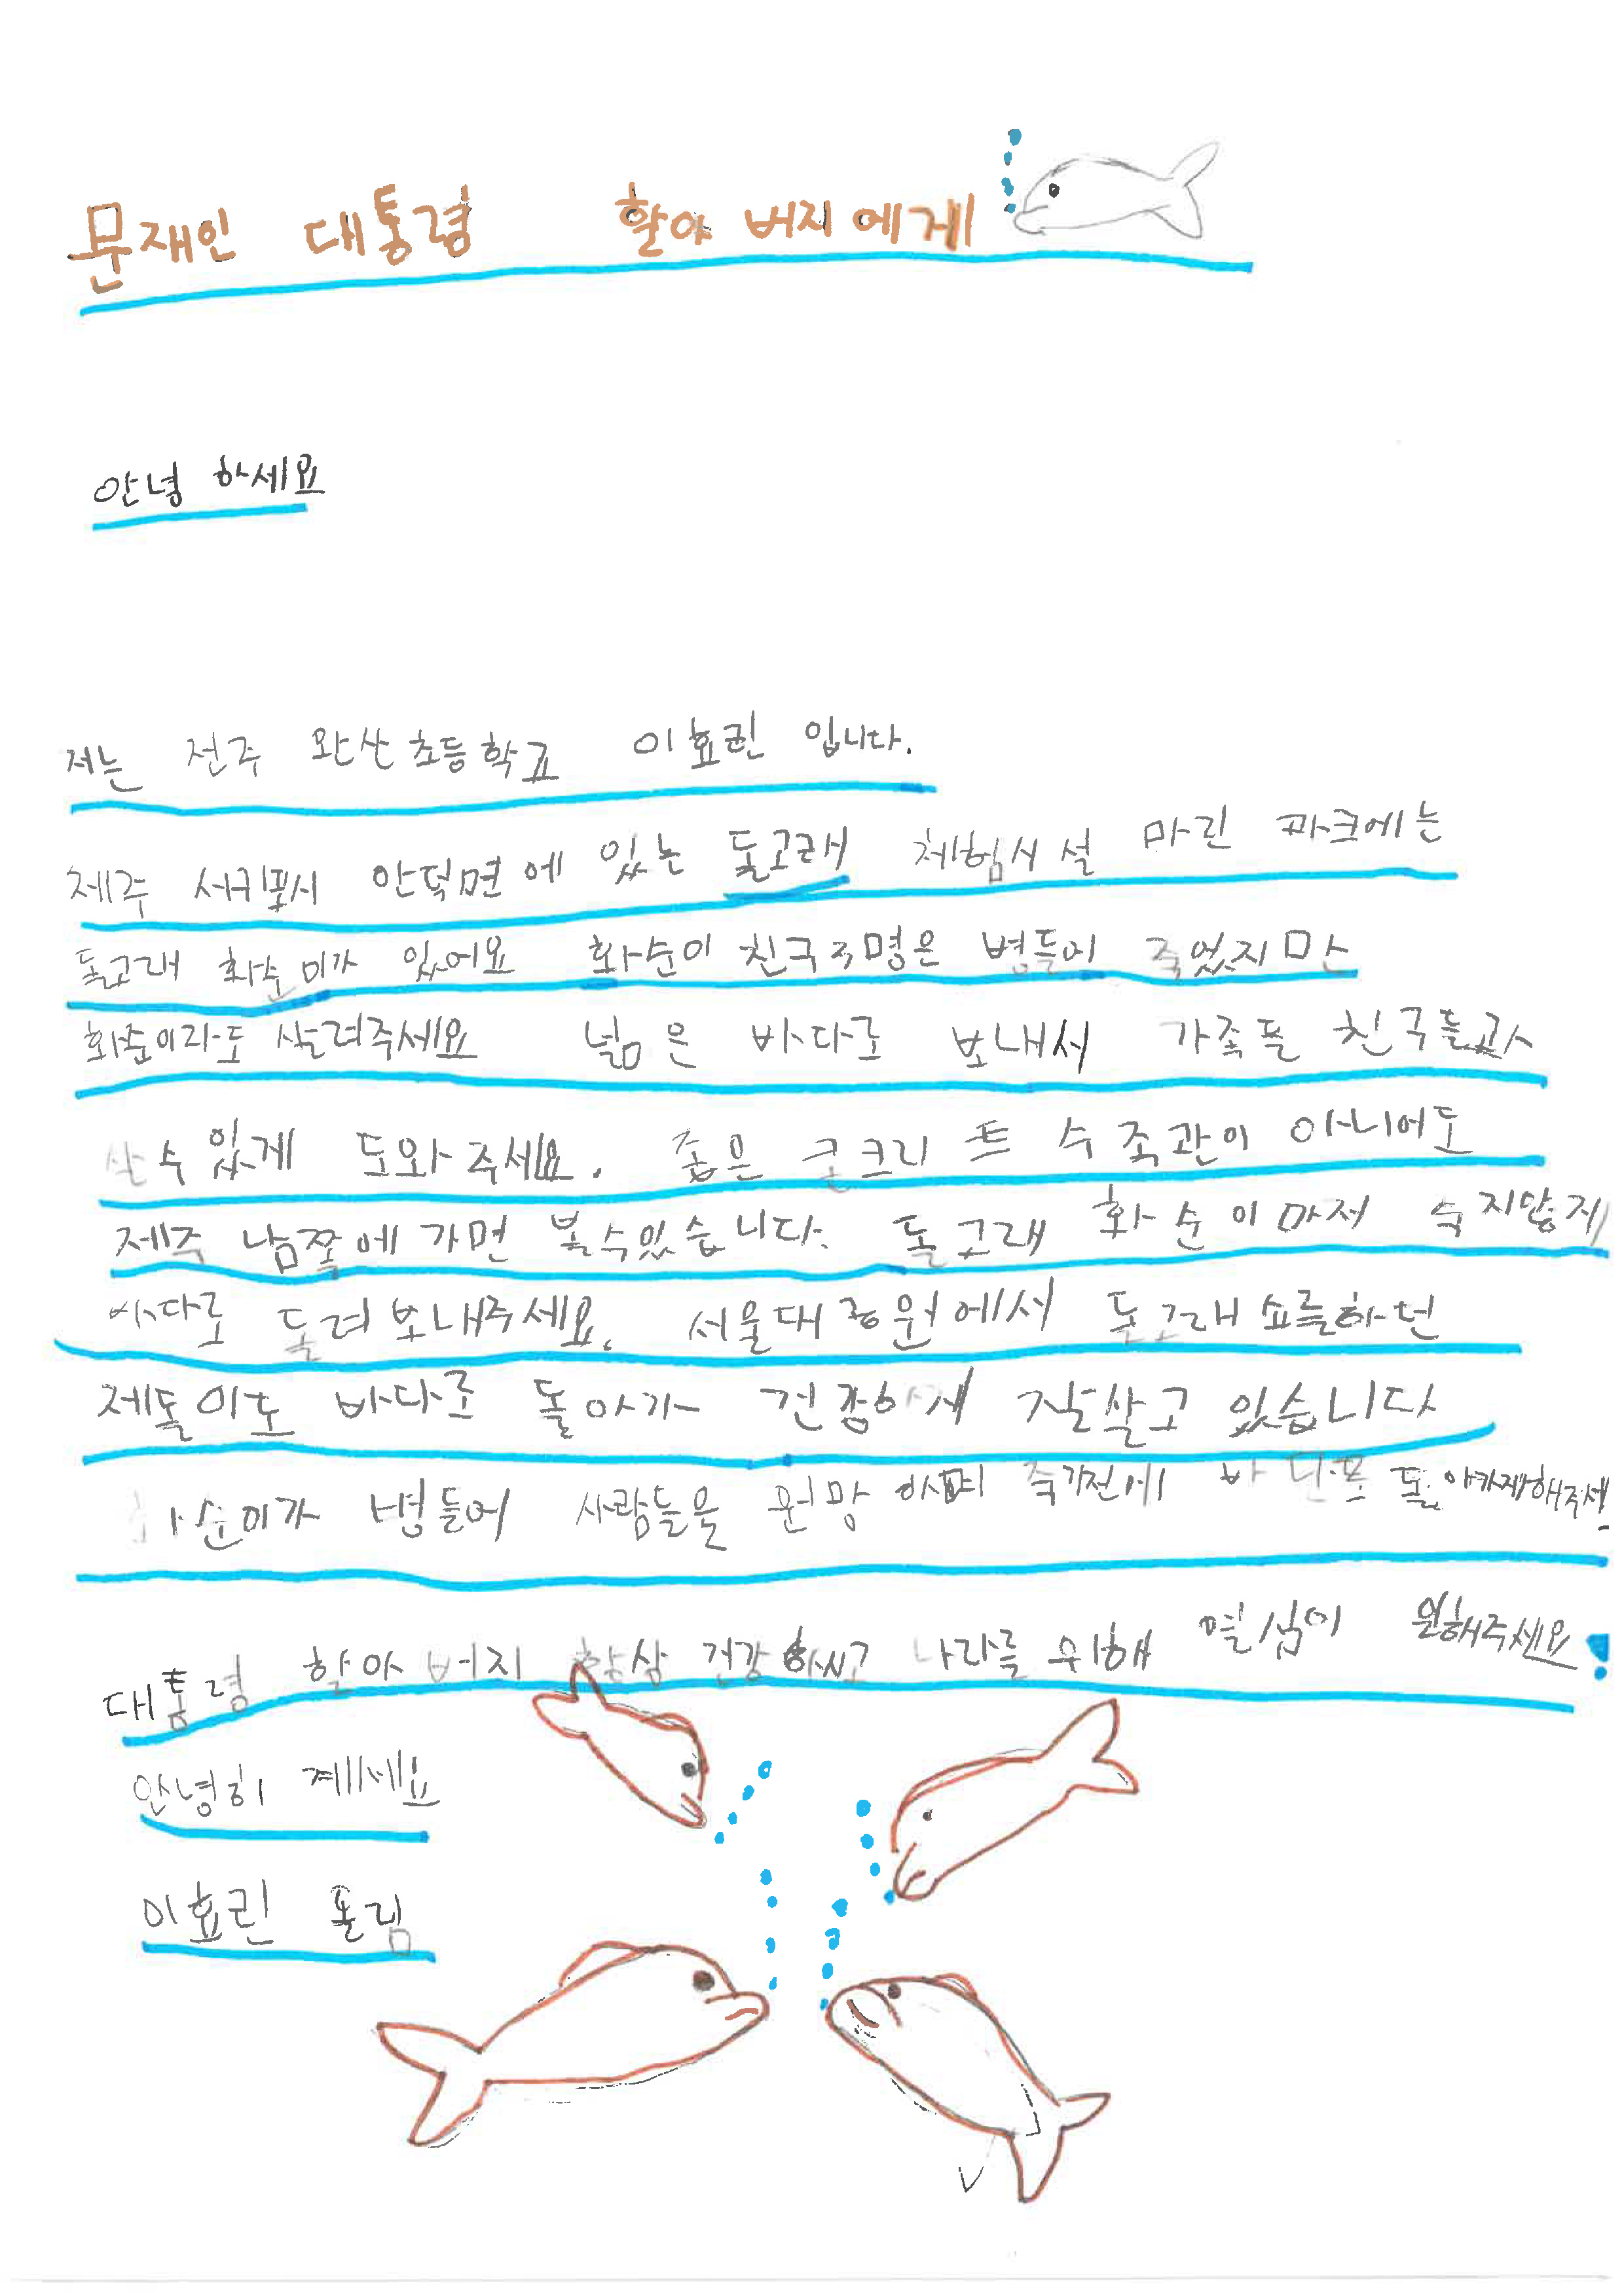 문재인 대통령 할아버지에게
안녕 하세요
저는 전주 완산초등학교 이효린 입니다.
제주 서귀포시 안덕면에 있는 돌고래 체험시설 마린 파크에는
돌고래 화순이가 있어요 화순이 친구3명은 병들어 죽었지만
화순이라도 살려주세요 넓은 바다로 보내서 가족들 친구들과
살수있게 도와주세요. 좁은 콘크리트 수족관이 아니어도
제주 남쪽에 가면 볼수있습니다. 돌고래 화순이마저
바다로 돌려보내주세요. 서울대공원에서 돌고래쇼를하던
제돌이도 바다로 돌아가 건강하게 잘살고 있습니다
화순이가 병들어 사람들을 원망하며 죽기전에 바다로
대통령 할아버지 항상 건강하시고 나라를 위해 열심히
안녕히 계세요
이효린 올림